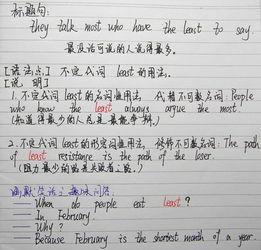 标题句:
They talk most who have the least to say.
最没话可说的人说得最多。
[语法点] 不定代词 least 的用法。
[说 明]
1. 不定代词 least 的名词性用法, 代替不可数名词: People
who know the least always argue the most.
(知道得最少的人总是最能争辩。)
2. 不定代词 least 的形容词性用法, 修饰不可数名词: The path
of least resistance is the path of the loser.
(阻力最少的路是失败者之路。)
幽默生活之趣味问答:
— When do people eat least?
— In February.
— Why?
— Because February is the shortest month of a year.